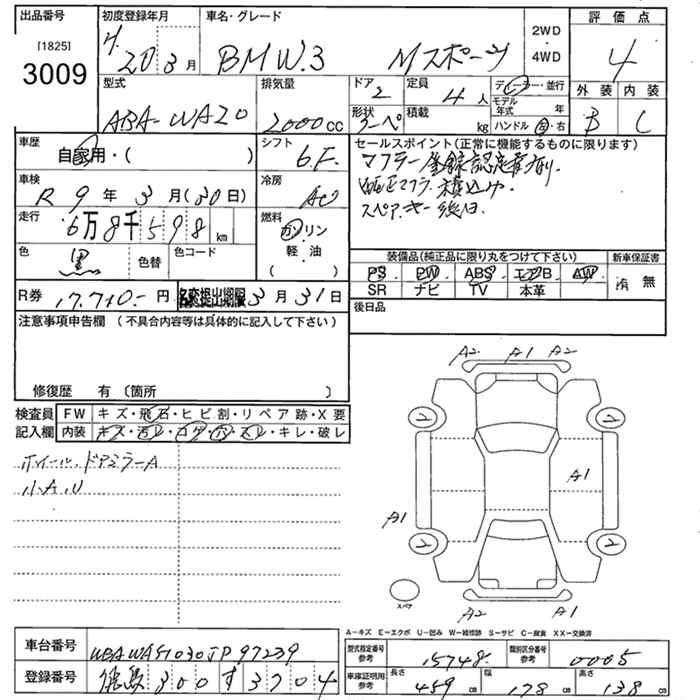 出品番号
[1825]
3009
初度登録年月
H. 20年 3月
車名・グレード
BMW.3 Mスポーツ
2WD
・
4WD
評価点
4
外装 内装
B C
型式
ABA-WA20
排気量
2000cc
ドア 2
形状 クーペ
定員 4人
積載 kg
ディーラー・並行
モデル年式 年
ハンドル 左・右
車歴
自家用・( )
シフト
6.F.
車検
R 9年 3月(30日)
冷房
AC
走行
6万8千598km
燃料
ガソリン
軽・油
( )
色
黒
色替
色コード
R券 17.710.-円
名変提出期限 3月31日
セールスポイント(正常に機能するものに限ります)
スペア.キー後日.
装備品(純正品に限り丸をつけて下さい)
PS PW ABS エアB AW
SR ナビ TV 本革
新車保証書
有 無
後日品
注意事項申告欄(不具合内容等は具体的に記入して下さい)
修復歴 有〔箇所 〕
検査員記入欄
FW キズ・飛石・ヒビ割・リペア跡・X要
内装 キズ・汚レ・コゲ・穴・スレ・キレ・破レ
ホイール.ドアミラーA
小A.U
A2 A1 A2
A1
A1
A2 A1
スペア
A-キズ E-エクボ U-凹み W-補修跡 S-サビ C-腐食 XX-交換済
車台番号
登録番号
徳島 300 す 3704
型式指定番号参考
15748
類別区分番号参考
0005
車庫証明用参考
長さ 459cm
幅 178cm
高さ 138cm